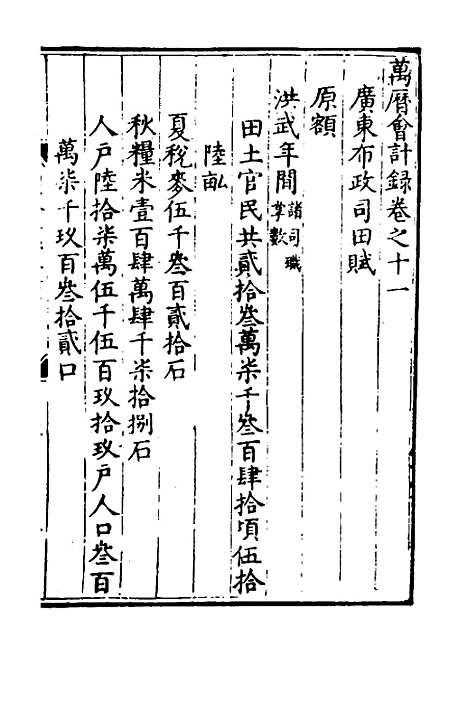 萬曆會計錄卷之十一
廣東布政司田賦
原額
洪武年間諸司職掌數
田土官民共貳拾叄萬柒千叄百肆拾頃伍拾
陸畝
夏稅麥伍千叄百貳拾石
秋糧米壹百肆萬肆千柒拾捌石
人戶陸拾柒萬伍千伍百玖拾玖戶人口叄百
萬柒千玖百叄拾貳口